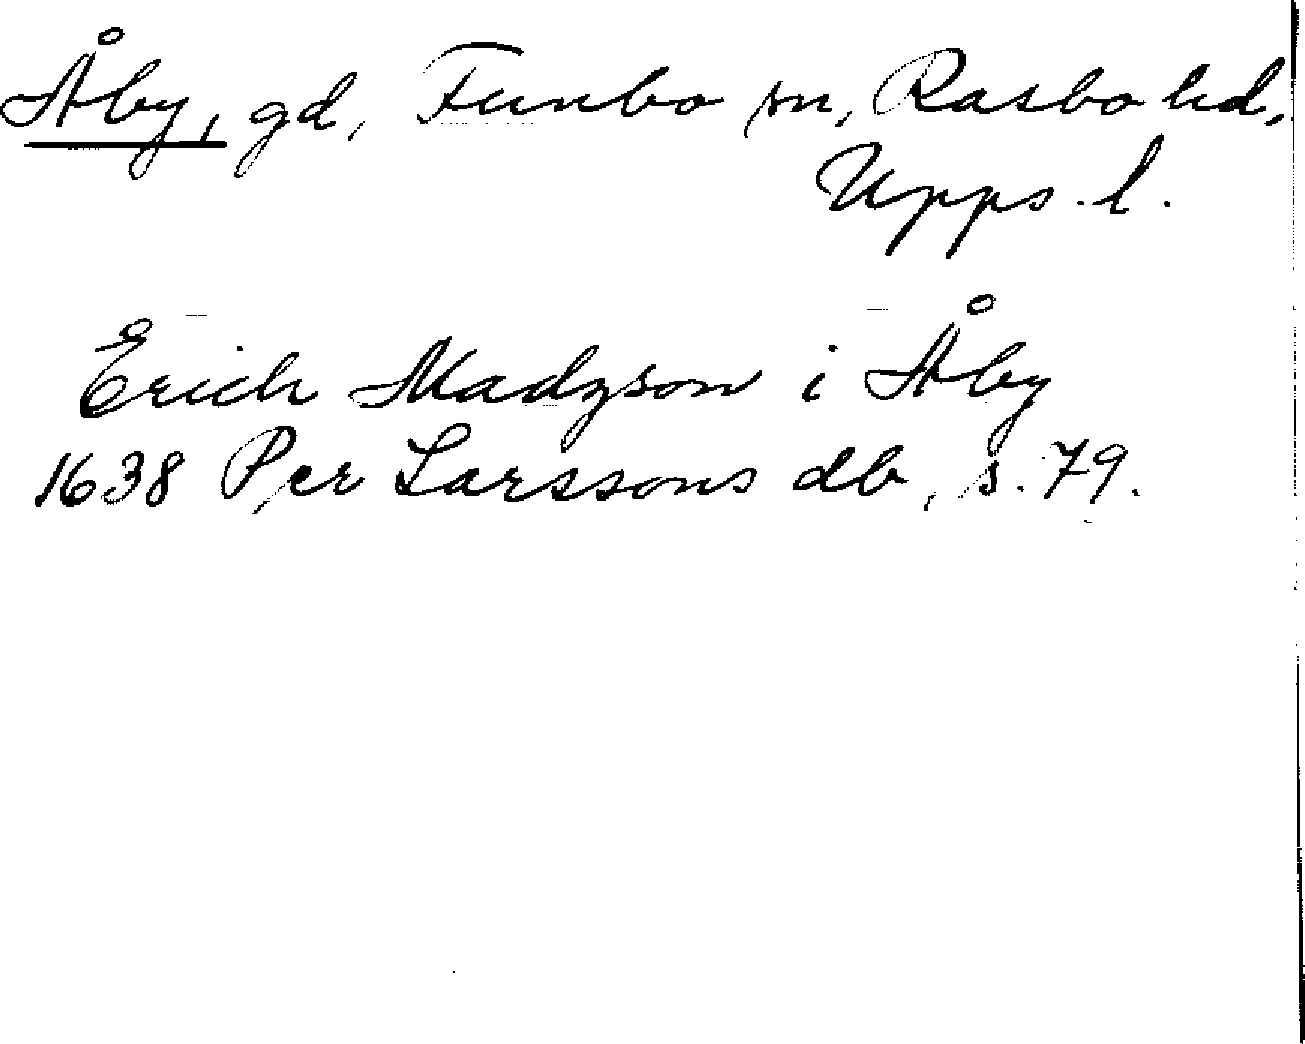 Åby, gd, Funbo sn, Rasbo hd,
Upps. l.
Erich Madzson i Åby
1638 Per Larssons db, s. 79.